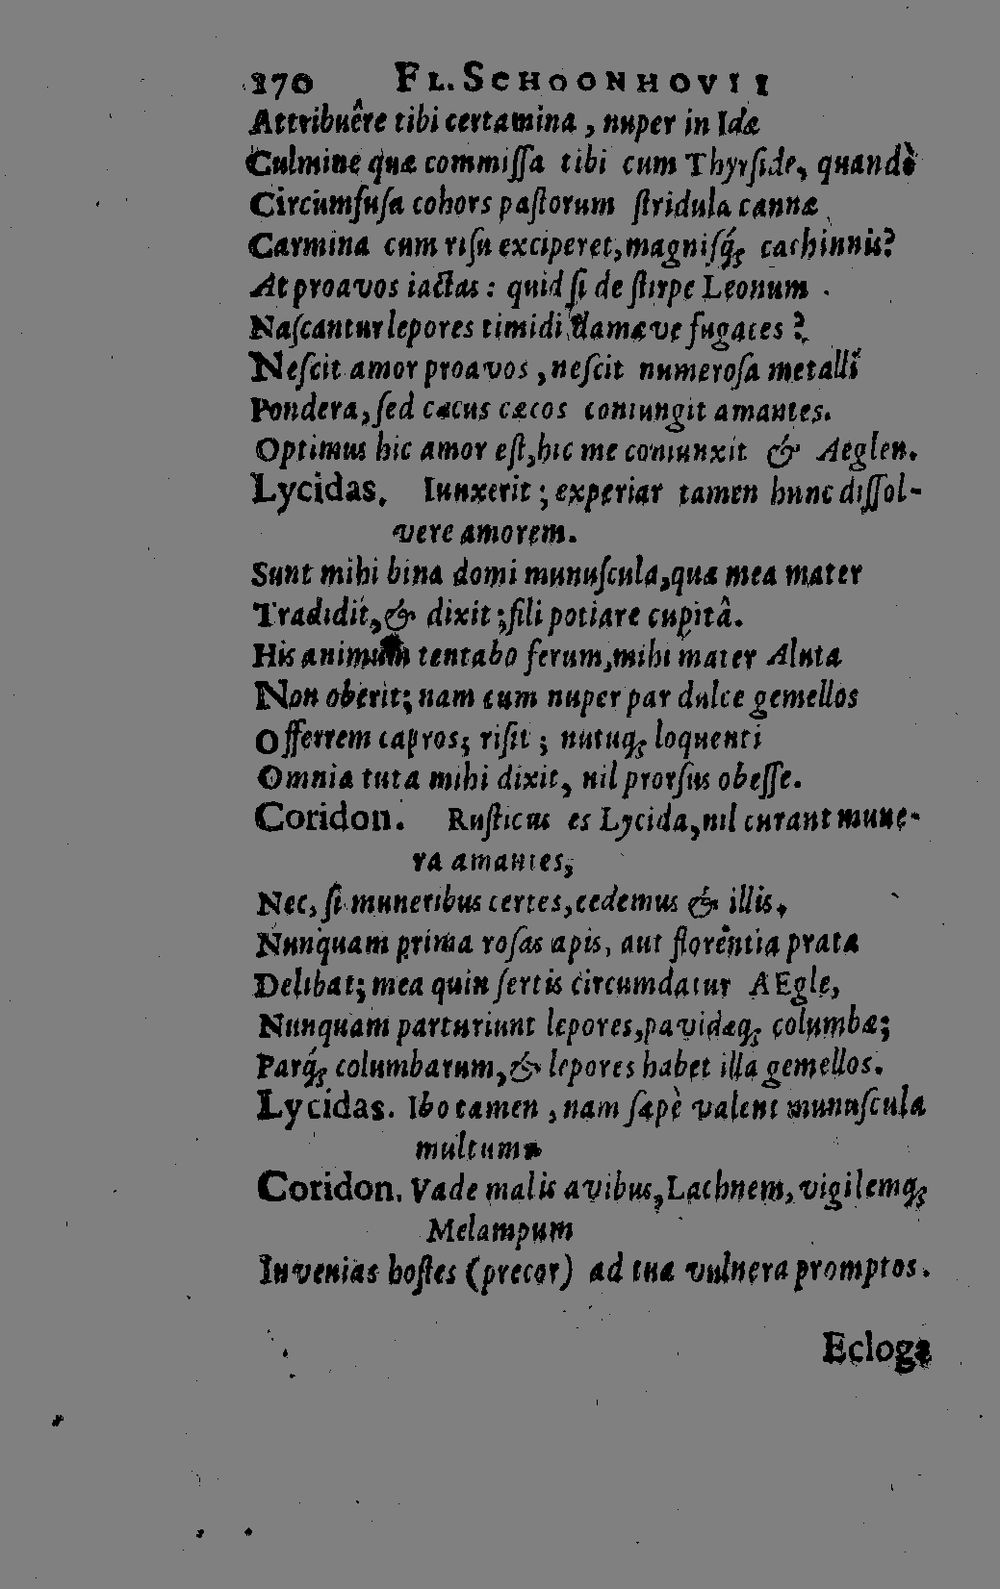 270 FL. SCHOONHOVII
Attribuêre tibi certamina, nuper in Idæ
Culmine quæ commiſſa tibi cum Thyrſide, quandò
Circumfuſa cohors paſtorum ſtridula cannæ
Carmina cum riſu exciperet, magniſq́; cachinnis?
At proavos iactas: quid ſi de ſtirpe Leonum
Naſcantur lepores timidi damæve fugaces?
Neſcit amor proavos, neſcit numeroſa metalli
Pondera, ſed cæcus cæcos coniungit amantes.
Optimus hic amor eſt, hic me coniunxit & Aeglen.
Lycidas. Iunxerit; experiar tamen hunc diſſol-
vere amorem.
Sunt mihi bina domi munuſcula, quæ mea mater
Tradidit, & dixit; fili potiare cupitâ.
His animum tentabo ferum, mihi mater Aluta
Non oberit; nam cum nuper par dulce gemellos
Offerrem capros; riſit; nutuq; loquenti
Omnia tuta mihi dixit, nil prorſus obeſſe.
Coridon. Ruſticus es Lycida, nil curant mune-
ra amantes;
Nec, ſi muneribus certes, cedemus & illis.
Nunquam prima roſas apis, aut florentia prata
Delibat; mea quin ſertis circumdatur AEgle,
Nunquam parturiunt lepores, pavidæq; columbæ;
Parq́; columbarum, & lepores habet illa gemellos.
Lycidas. Ibo tamen, nam ſæpè valent munuſcula
multum.
Coridon. Vade malis avibus, Lachnem, vigilemq;
Melampum
Invenias hoſtes (precor) ad tua vulnera promptos.
Ecloga